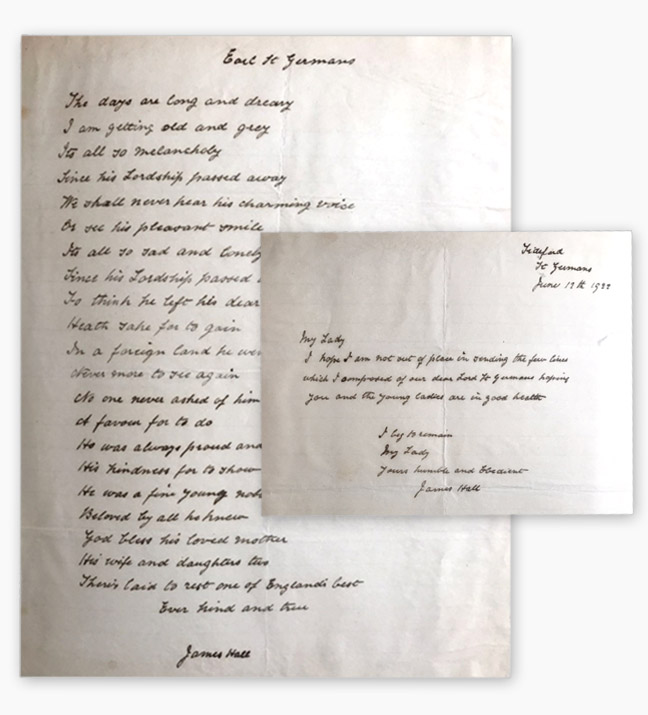 Earl St Germans
The days are long and dreary
I am getting old and grey
Its all so melancholy
Since his Lordship passed away
We shall never hear his charming voice
Or see his pleasant smile
Its all so sad and lonely
Since his Lordship passed
To think he left his dear
Heath sake for to gain
In a foreign land he
Never more to see again
No one never asked of him
A favour for to do
He was always proud and
His kindness for to show
He was a fine young
Beloved by all he knew
God bless his loved mother
His wife and daughters two
There's laid to rest one of England's best
Ever kind and true
James Hall
Tideford
St Germans
June 12th 1922
My Lady
I hope I am not out of place in sending the few lines
which I composed of our dear Lord St Germans hoping
you and the young Ladies are in good health
I beg to remain
My Lady
Yours humble and Obedient
James Hall